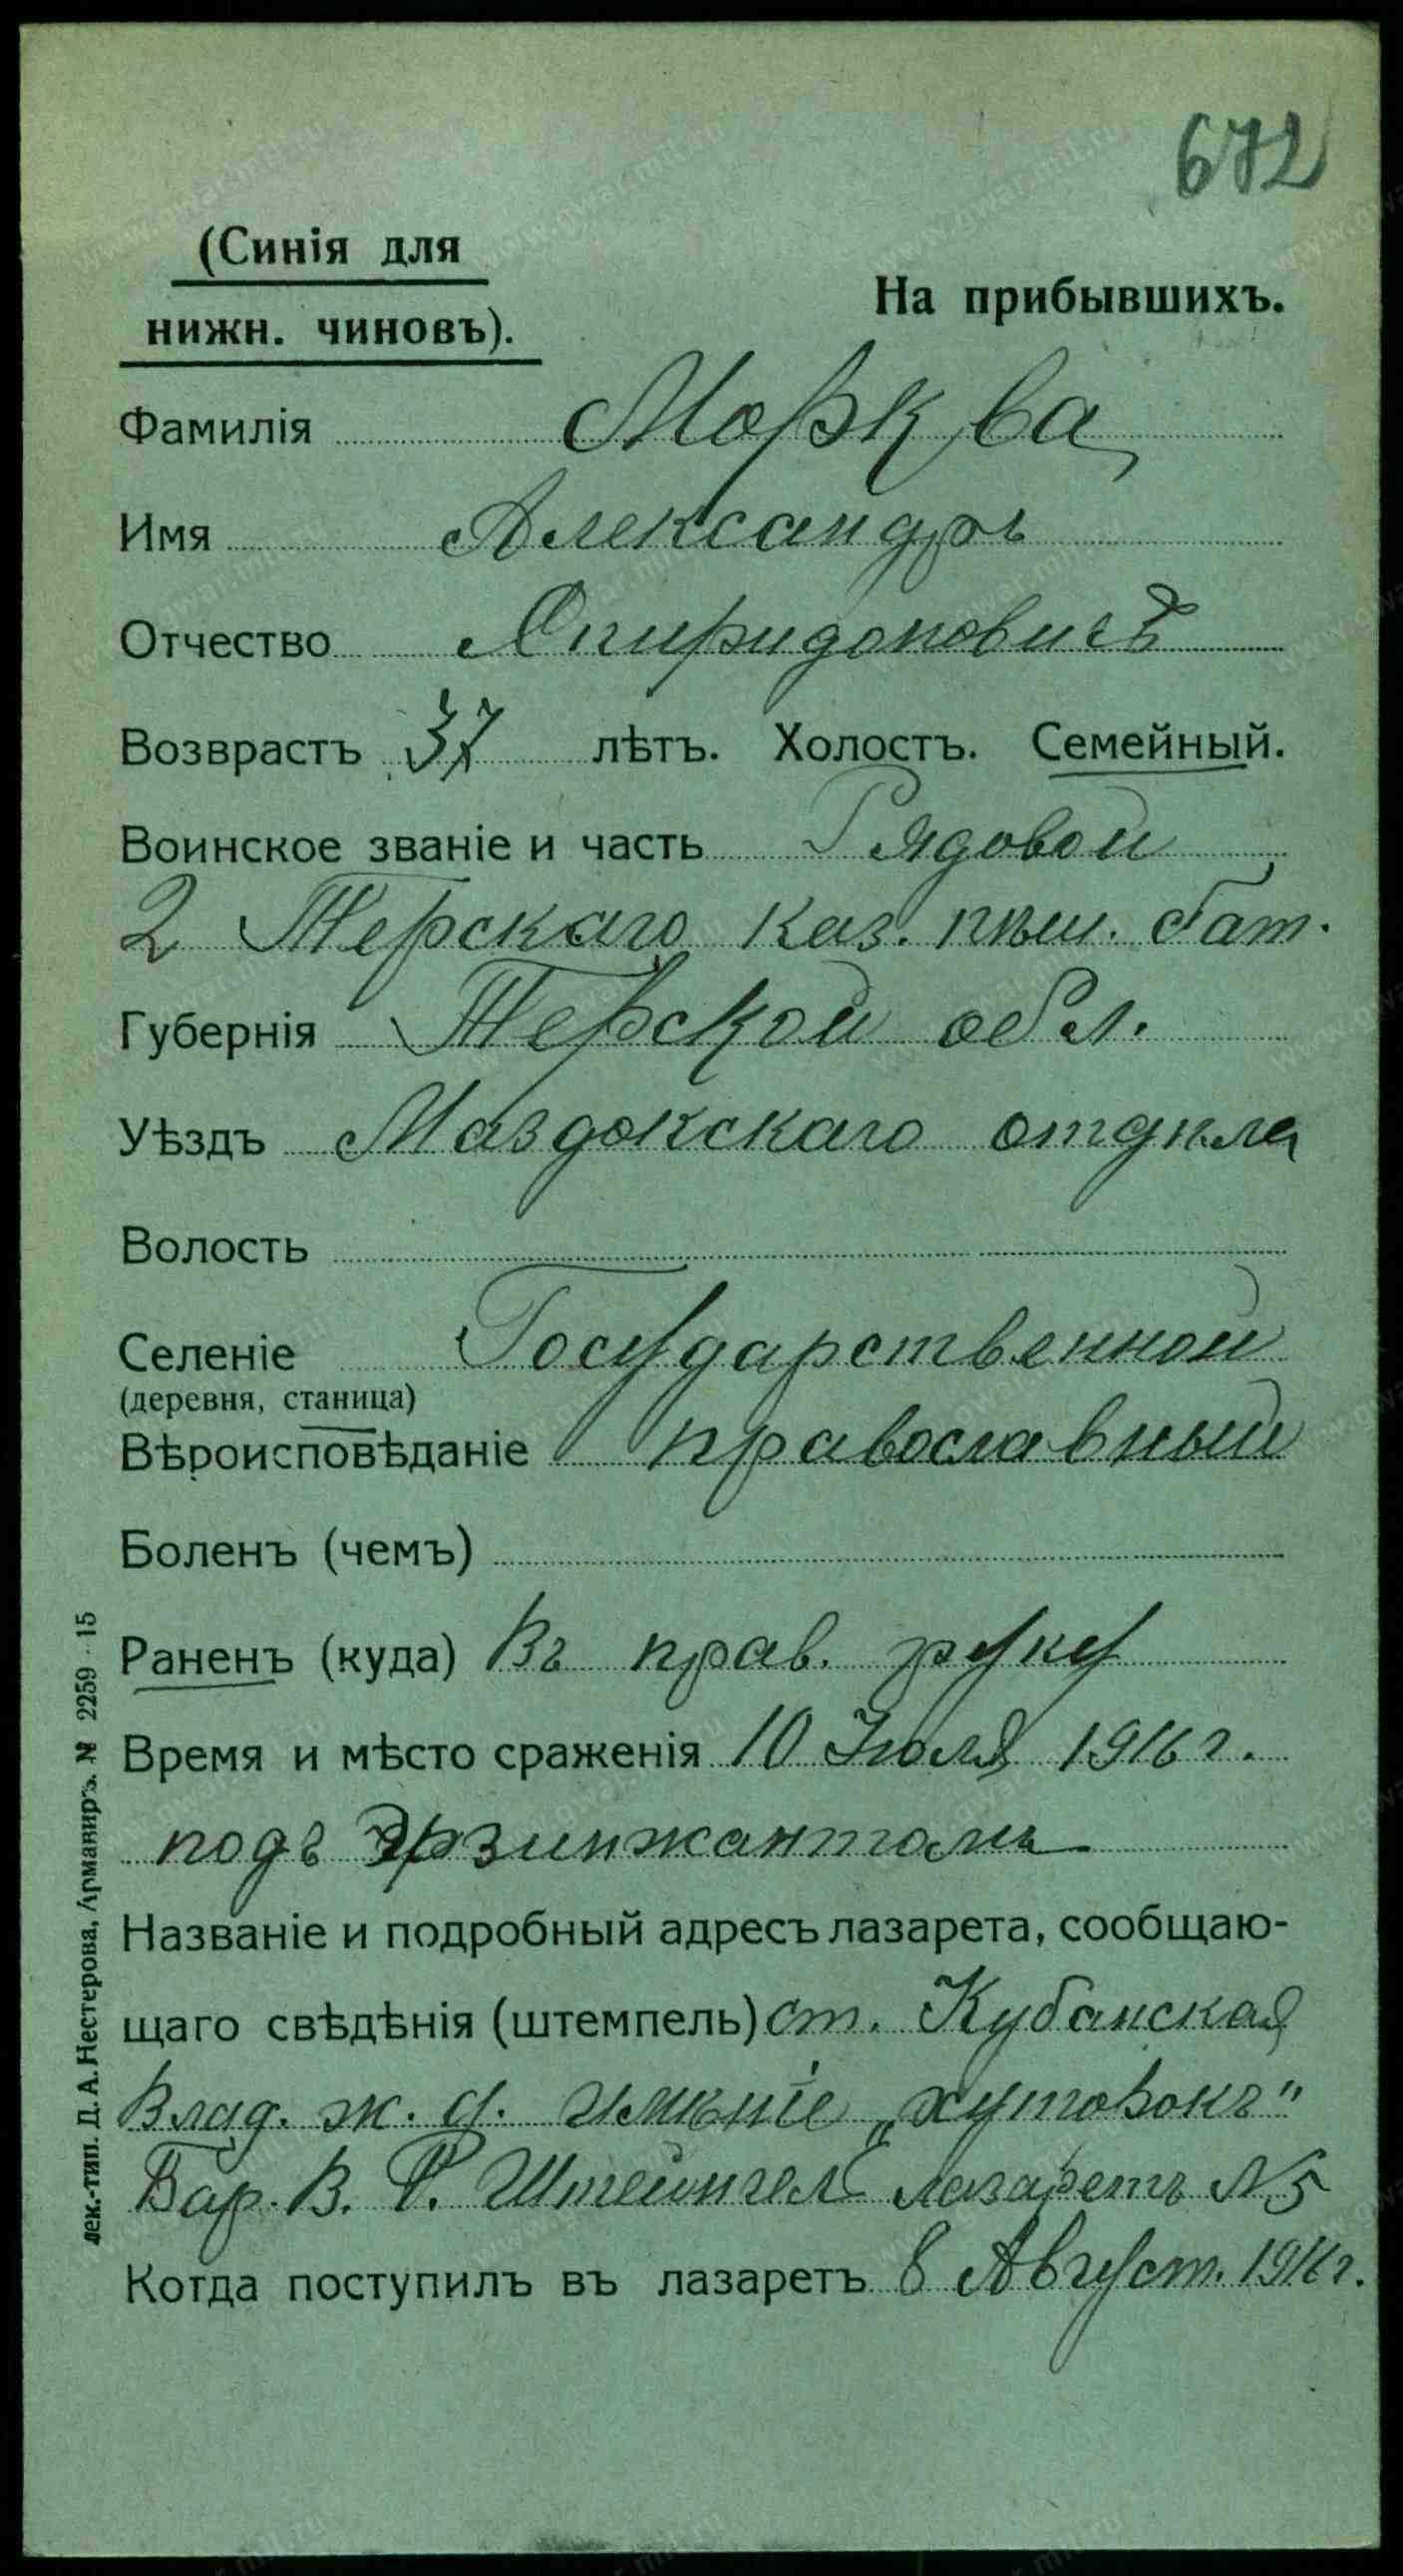 672
(Синія для
нижн. чиновъ).
На прибывшихъ.
Фамилія Морква
Имя Александръ
Отчество Спиридоновичъ
Возврастъ 37 лѣтъ. Холостъ. Семейный.
Воинское званіе и часть Рядовой
2 Терскаго каз. пѣш. бат.
Губернія Терской обл.
Уѣздъ Маздокскаго отдѣла
Волость
Селеніе Государственной
(деревня, станица)
Вѣроисповѣданіе православный
Боленъ (чемъ)
Раненъ (куда) Въ прав. руку
Время и мѣсто сраженія 10 Июля 1916 г.
подъ Эрзинжантомъ
Названіе и подробный адресъ лазарета, сообщаю-
щаго свѣдѣнія (штемпель) ст. Кубанская
Влад. ж. д. имѣніе „хуторокъ"
Бар. В. Р. Штейнгел лазаретъ N 5
Когда поступилъ въ лазаретъ 8 Август. 1916 г.
лек.-тип. Д. А. Нестерова, Армавиръ. № 2259 - 15
www.gwar.mil.ru